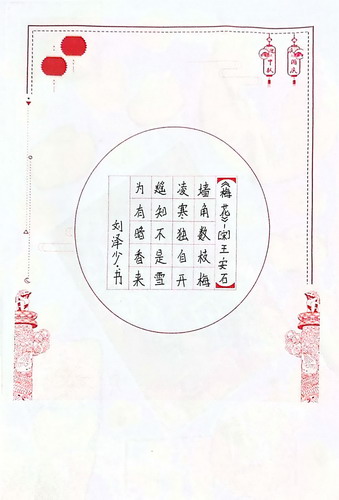 《梅花》宋王安石
墙角数枝梅
凌寒独自开
遥知不是雪
为有暗香来
刘泽少书